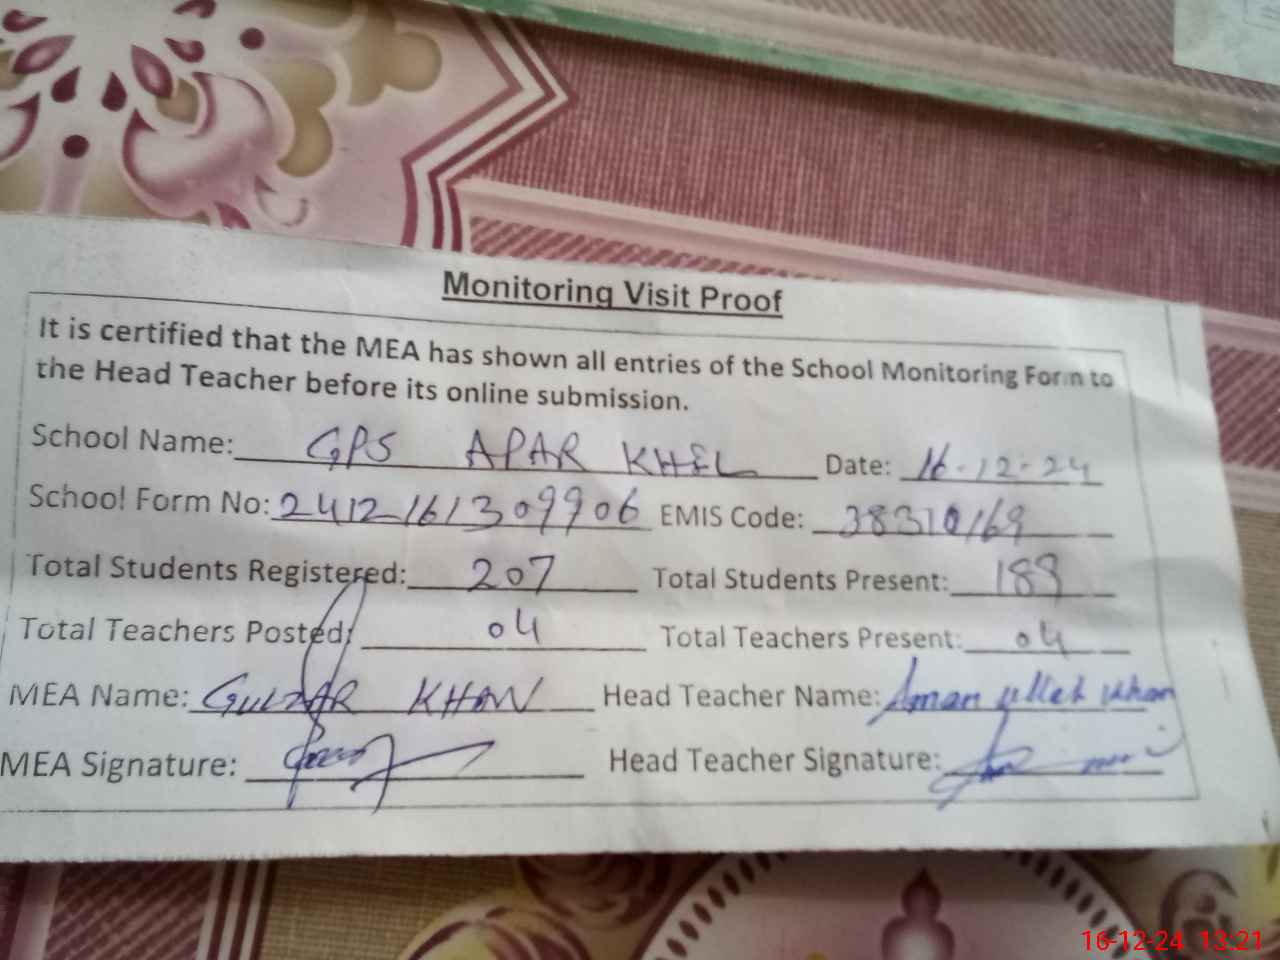 Monitoring Visit Proof
It is certified that the MEA has shown all entries of the School Monitoring Form to
the Head Teacher before its online submission.
School Name: GPS APAR KHEL Date: 16-12-24
School Form No: 2412161309906 EMIS Code: 38310169
Total Students Registered: 207 Total Students Present: 189
Total Teachers Posted: 04 Total Teachers Present: 04
MEA Name: GULZAR KHAN Head Teacher Name: Aman ullah khan
MEA Signature: Head Teacher Signature:
16-12-24 13:21